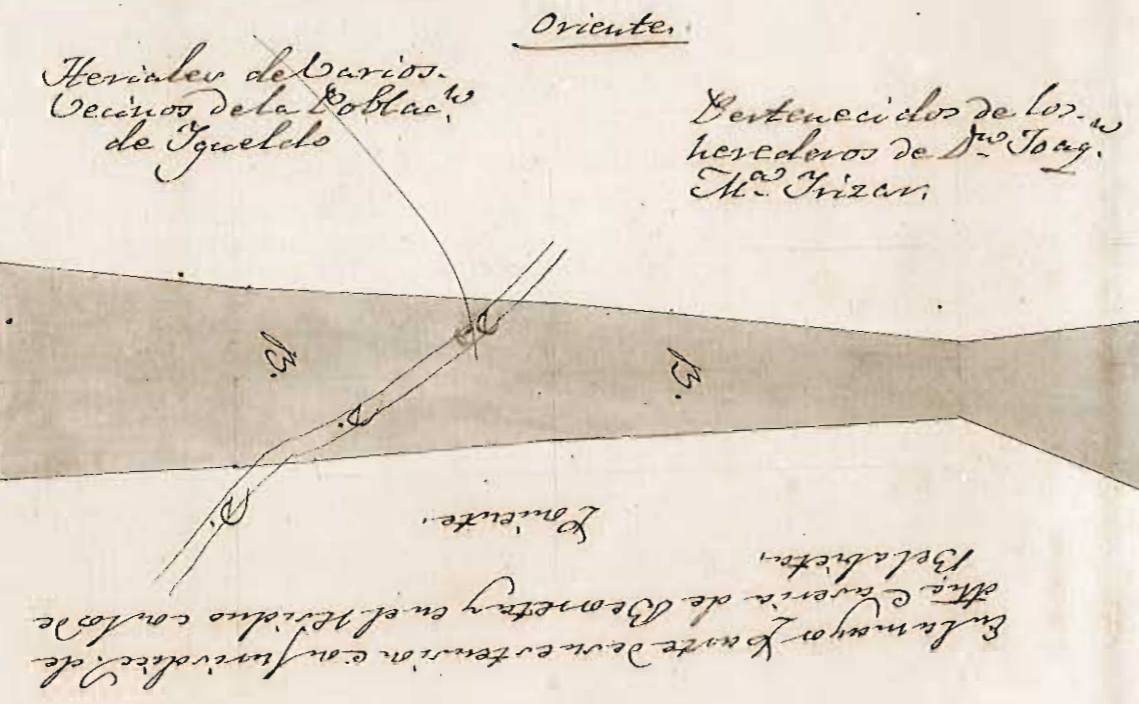 Oriente.
Heriales de Varios
Vecinos de la Poblac.ⁿ
de Ygueldo
Pertenecidos de los
herederos de Dⁿ Joaq.ⁿ
M.ª Yrizar.
B.
B.
C
C
C
C
Poniente.
En la mayor parte de su estension con jurisdicc.ⁿ de
dha Caseria de y en el residuo con los de
Belabieta.